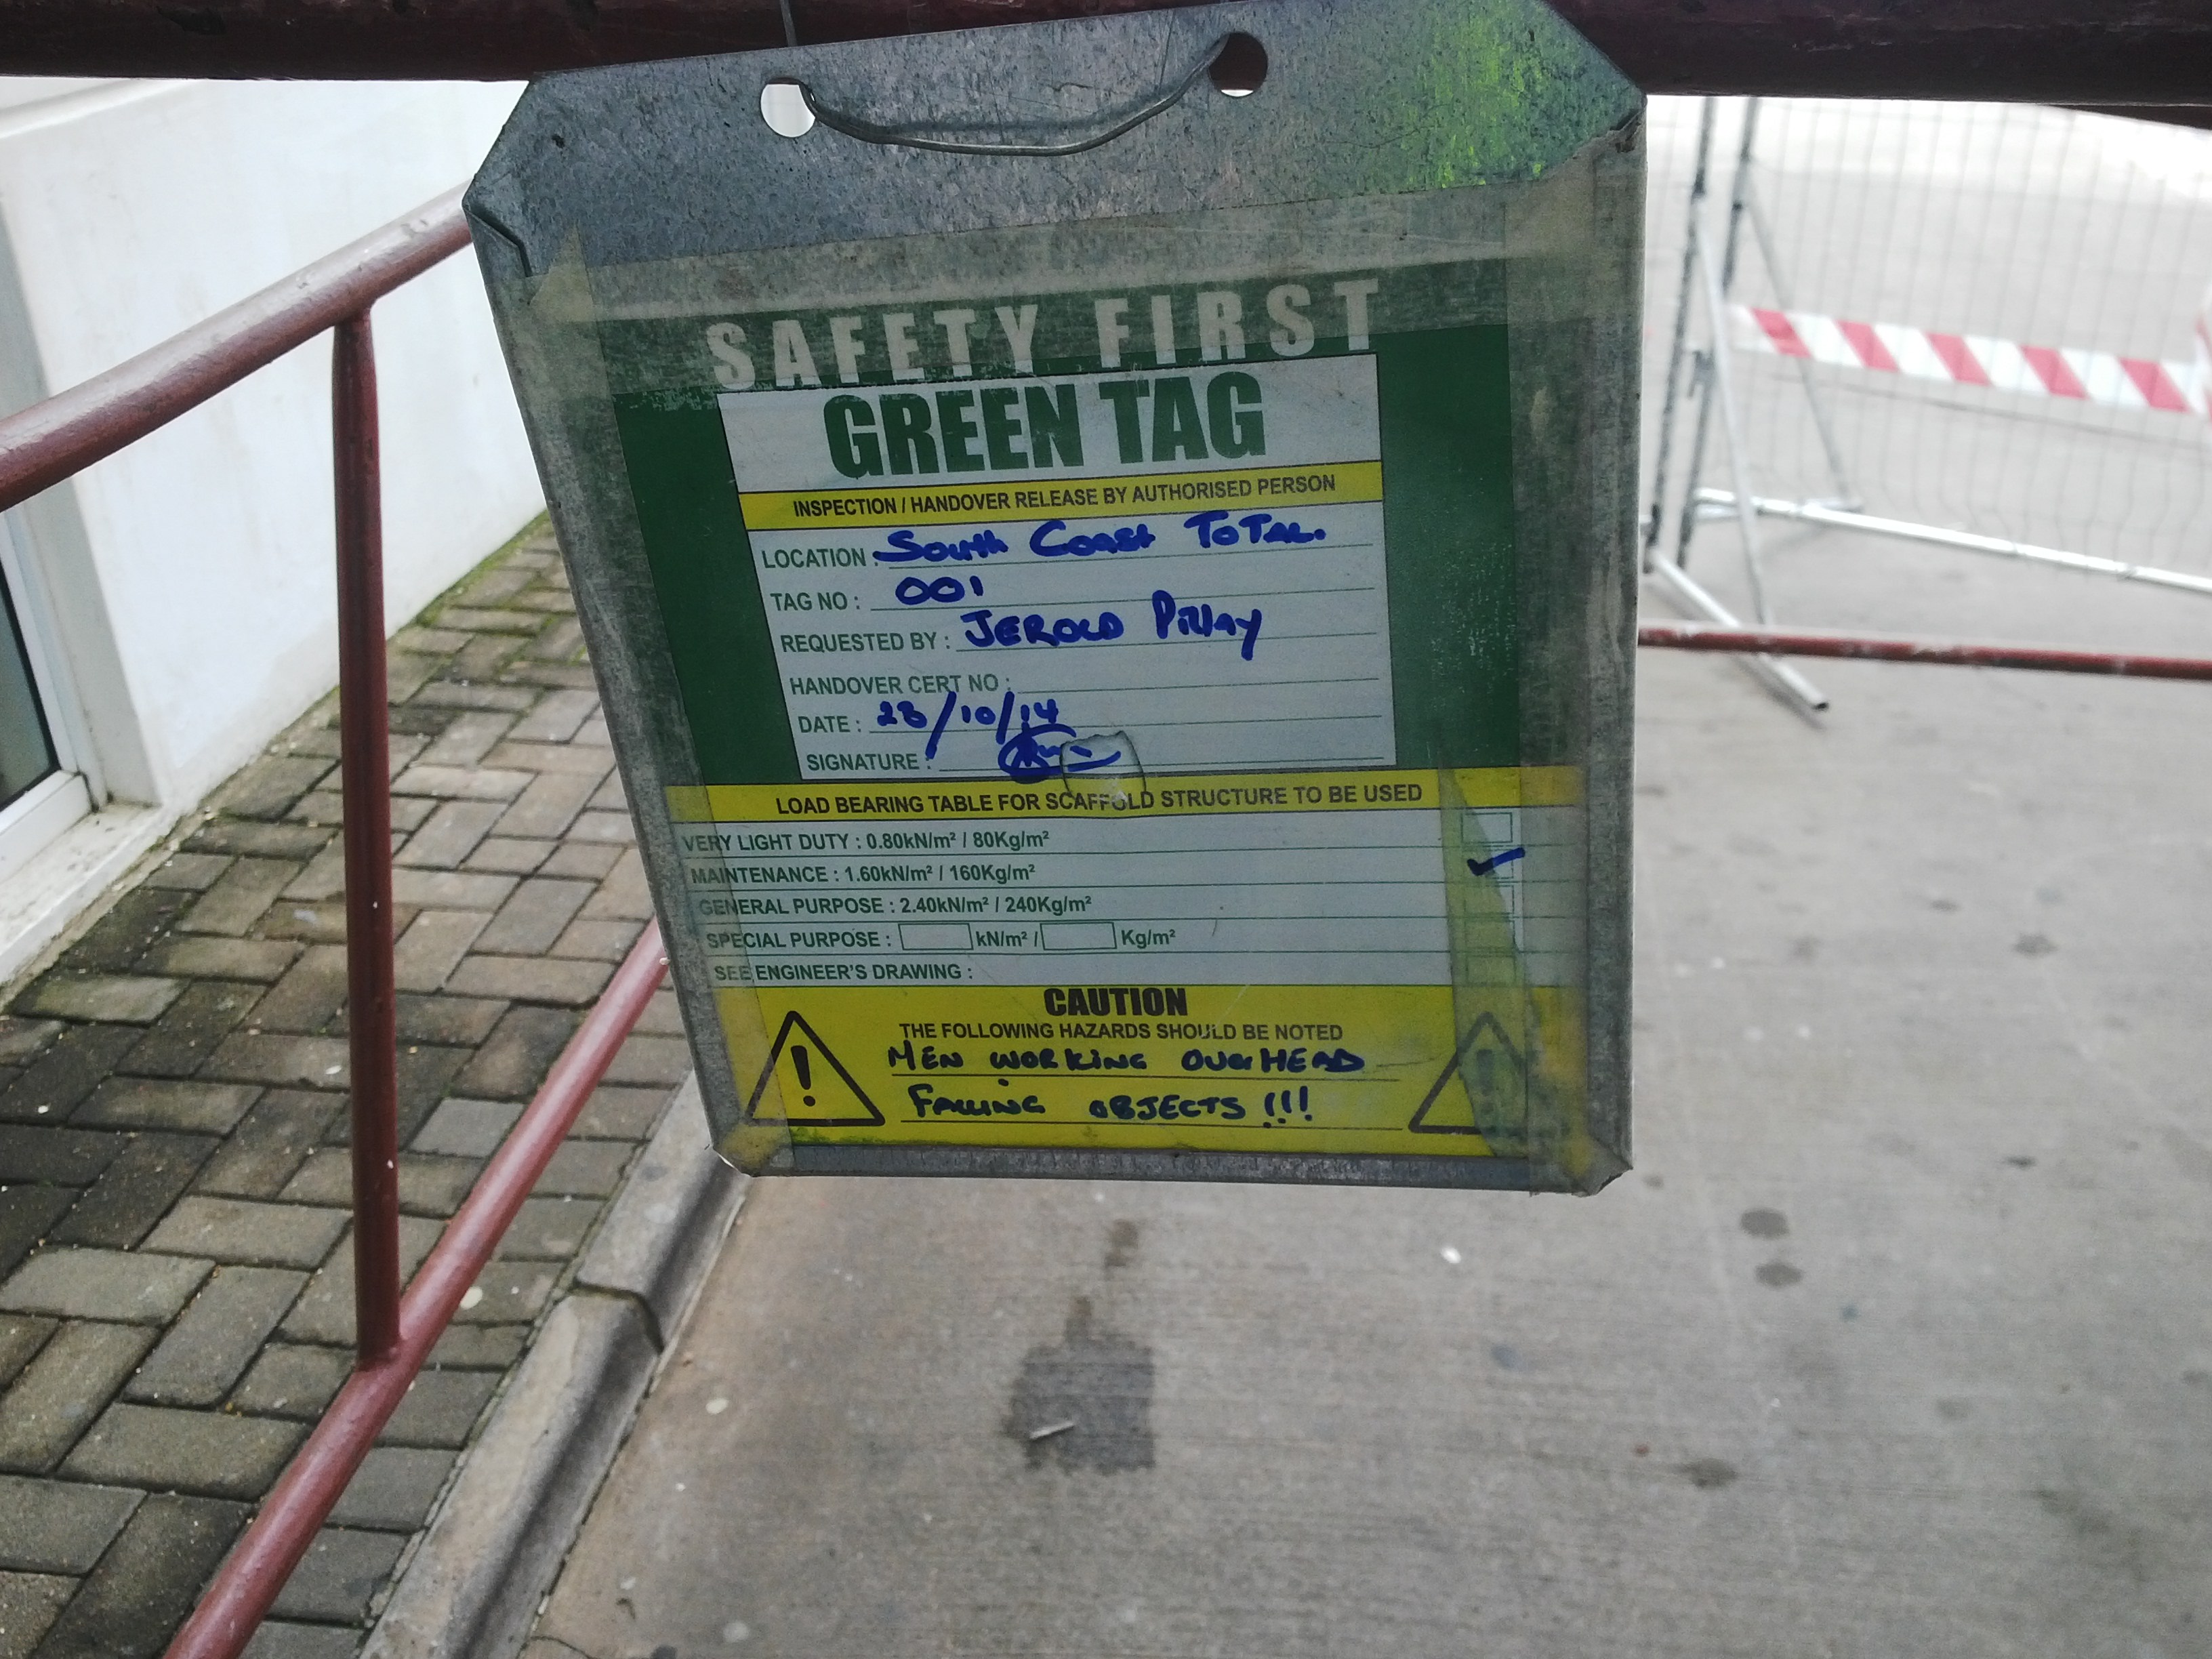 SAFETY FIRST
GREEN TAG
INSPECTION / HANDOVER RELEASE BY AUTHORISED PERSON
LOCATION : South Coast TOTAL.
TAG NO : 001
REQUESTED BY : JEROLD Pillay
HANDOVER CERT NO :
DATE : 28/10/14
SIGNATURE :
LOAD BEARING TABLE FOR SCAFFOLD STRUCTURE TO BE USED
VERY LIGHT DUTY : 0.80kN/m² / 80Kg/m²
MAINTENANCE : 1.60kN/m² / 160Kg/m²
GENERAL PURPOSE : 2.40kN/m² / 240Kg/m²
SPECIAL PURPOSE : kN/m² / Kg/m²
SEE ENGINEER'S DRAWING :
CAUTION
THE FOLLOWING HAZARDS SHOULD BE NOTED
MEN WORKING OVERHEAD
FALLING OBJECTS !!!